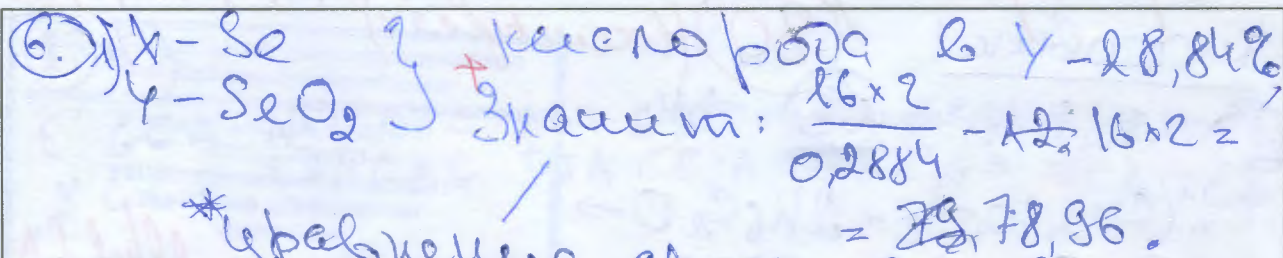 6. 1) X - Se } кислорода в Y - 28,84%,
Y - SeO₂ } Значит: 16×2 / 0,2884 - 16×2 =
= 78,96.
* уравнение